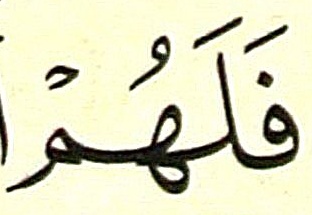 فَلَهُمْ